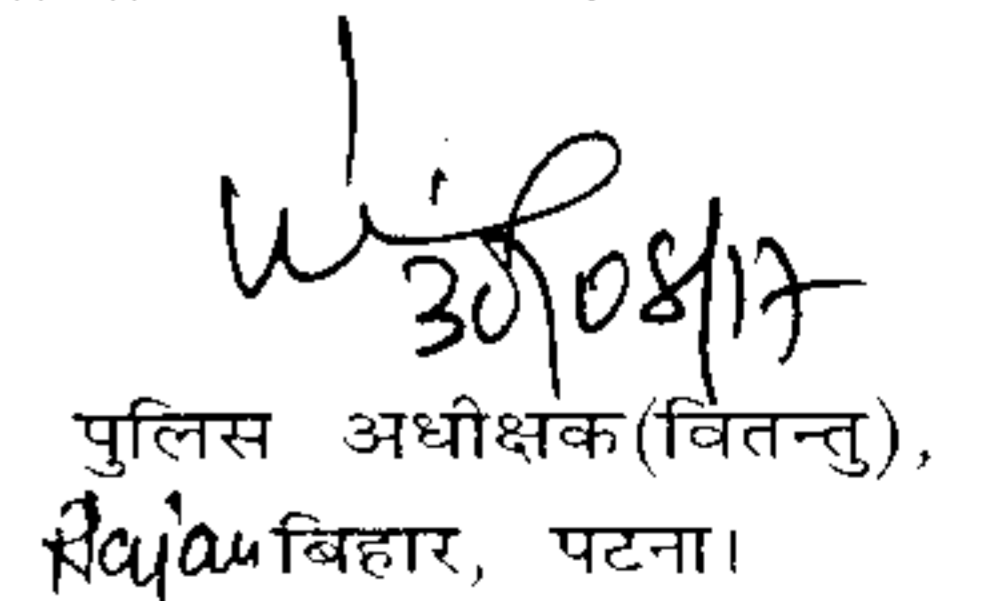 30/08/17
पुलिस अधीक्षक(वितन्तु),
Rajan बिहार, पटना।